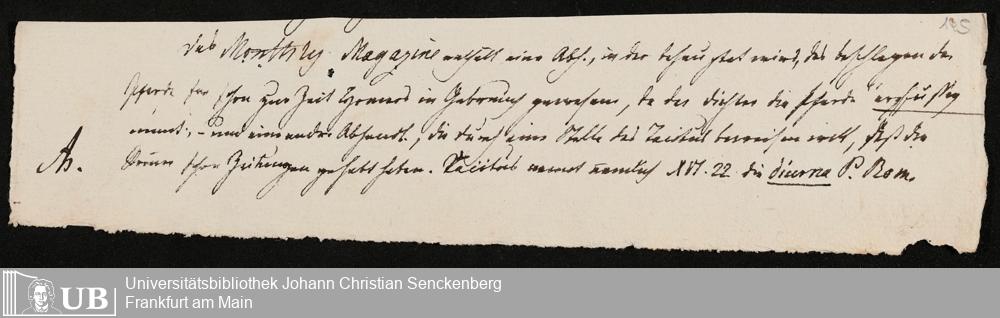 125
Das Monthly Magazine enthält eine Abh., in der behauptet wird, das beschlagen der
Pferde sey schon zur Zeit Homers in Gebrauch gewesen, da der Dichter die Pferde "erzfüssig
nennt; – und eine andre Abhandl., die durch eine Stelle des Tacitus beweisen will, daß die
A. Römer schon Zeitungen gehabt haben. Tacitus nennt nemlich XVI. 22 die diurna P. Rom.
UB
Universitätsbibliothek Johann Christian Senckenberg
Frankfurt am Main